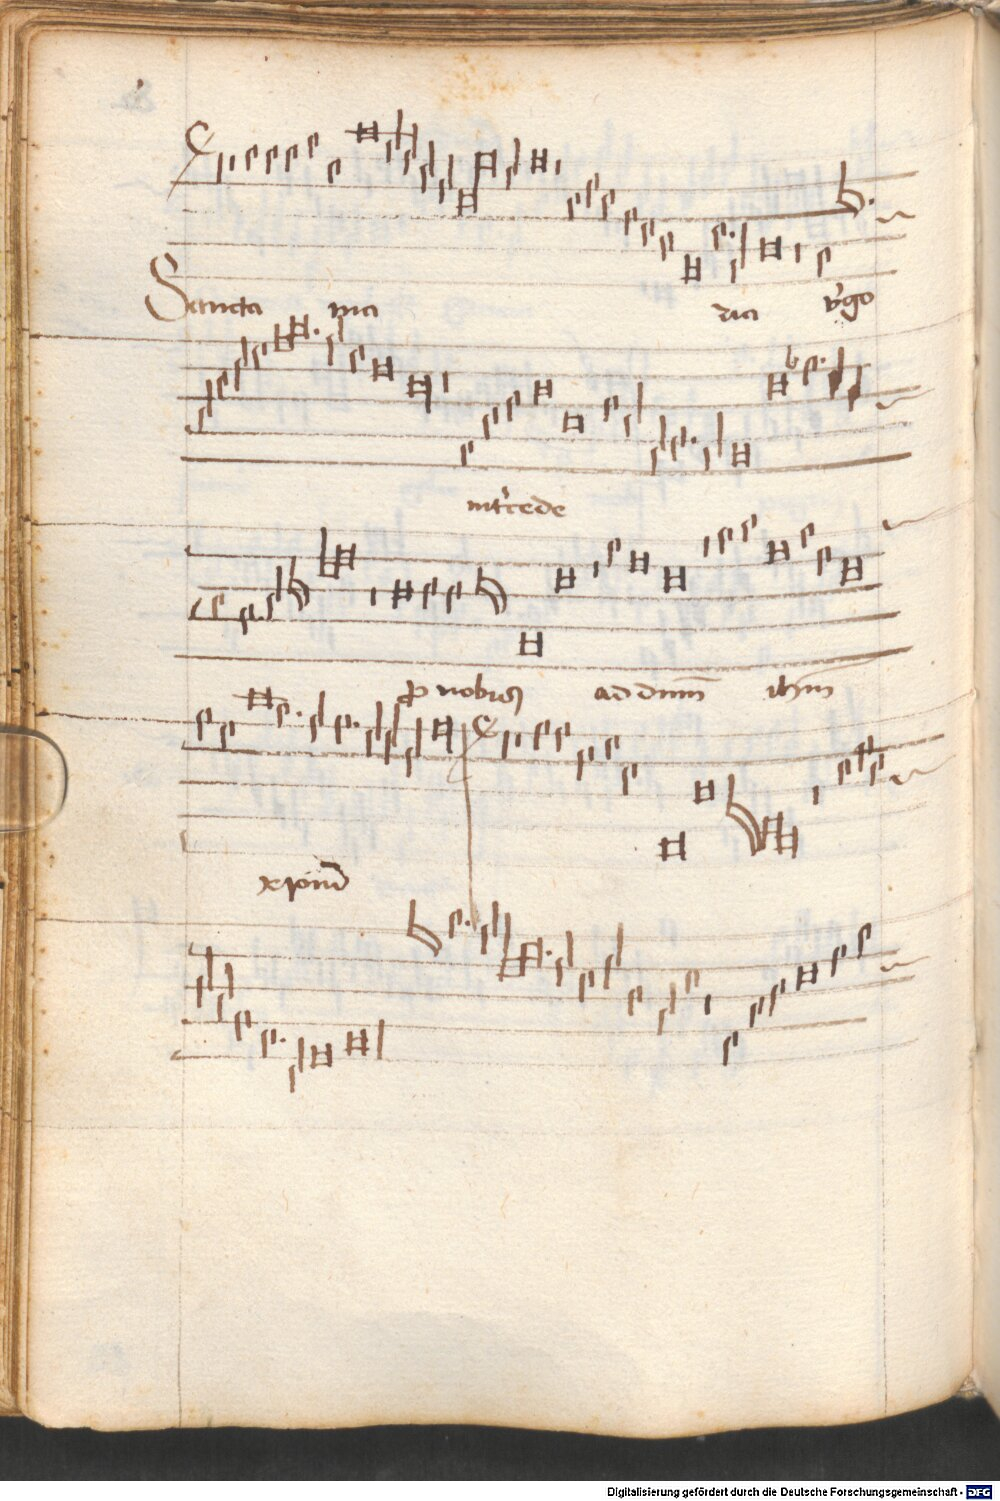 Sancta ma ria v'go
int'cede
p nobis ad dnm ihm
xpm
Digitalisierung gefördert durch die Deutsche Forschungsgemeinschaft - DFG